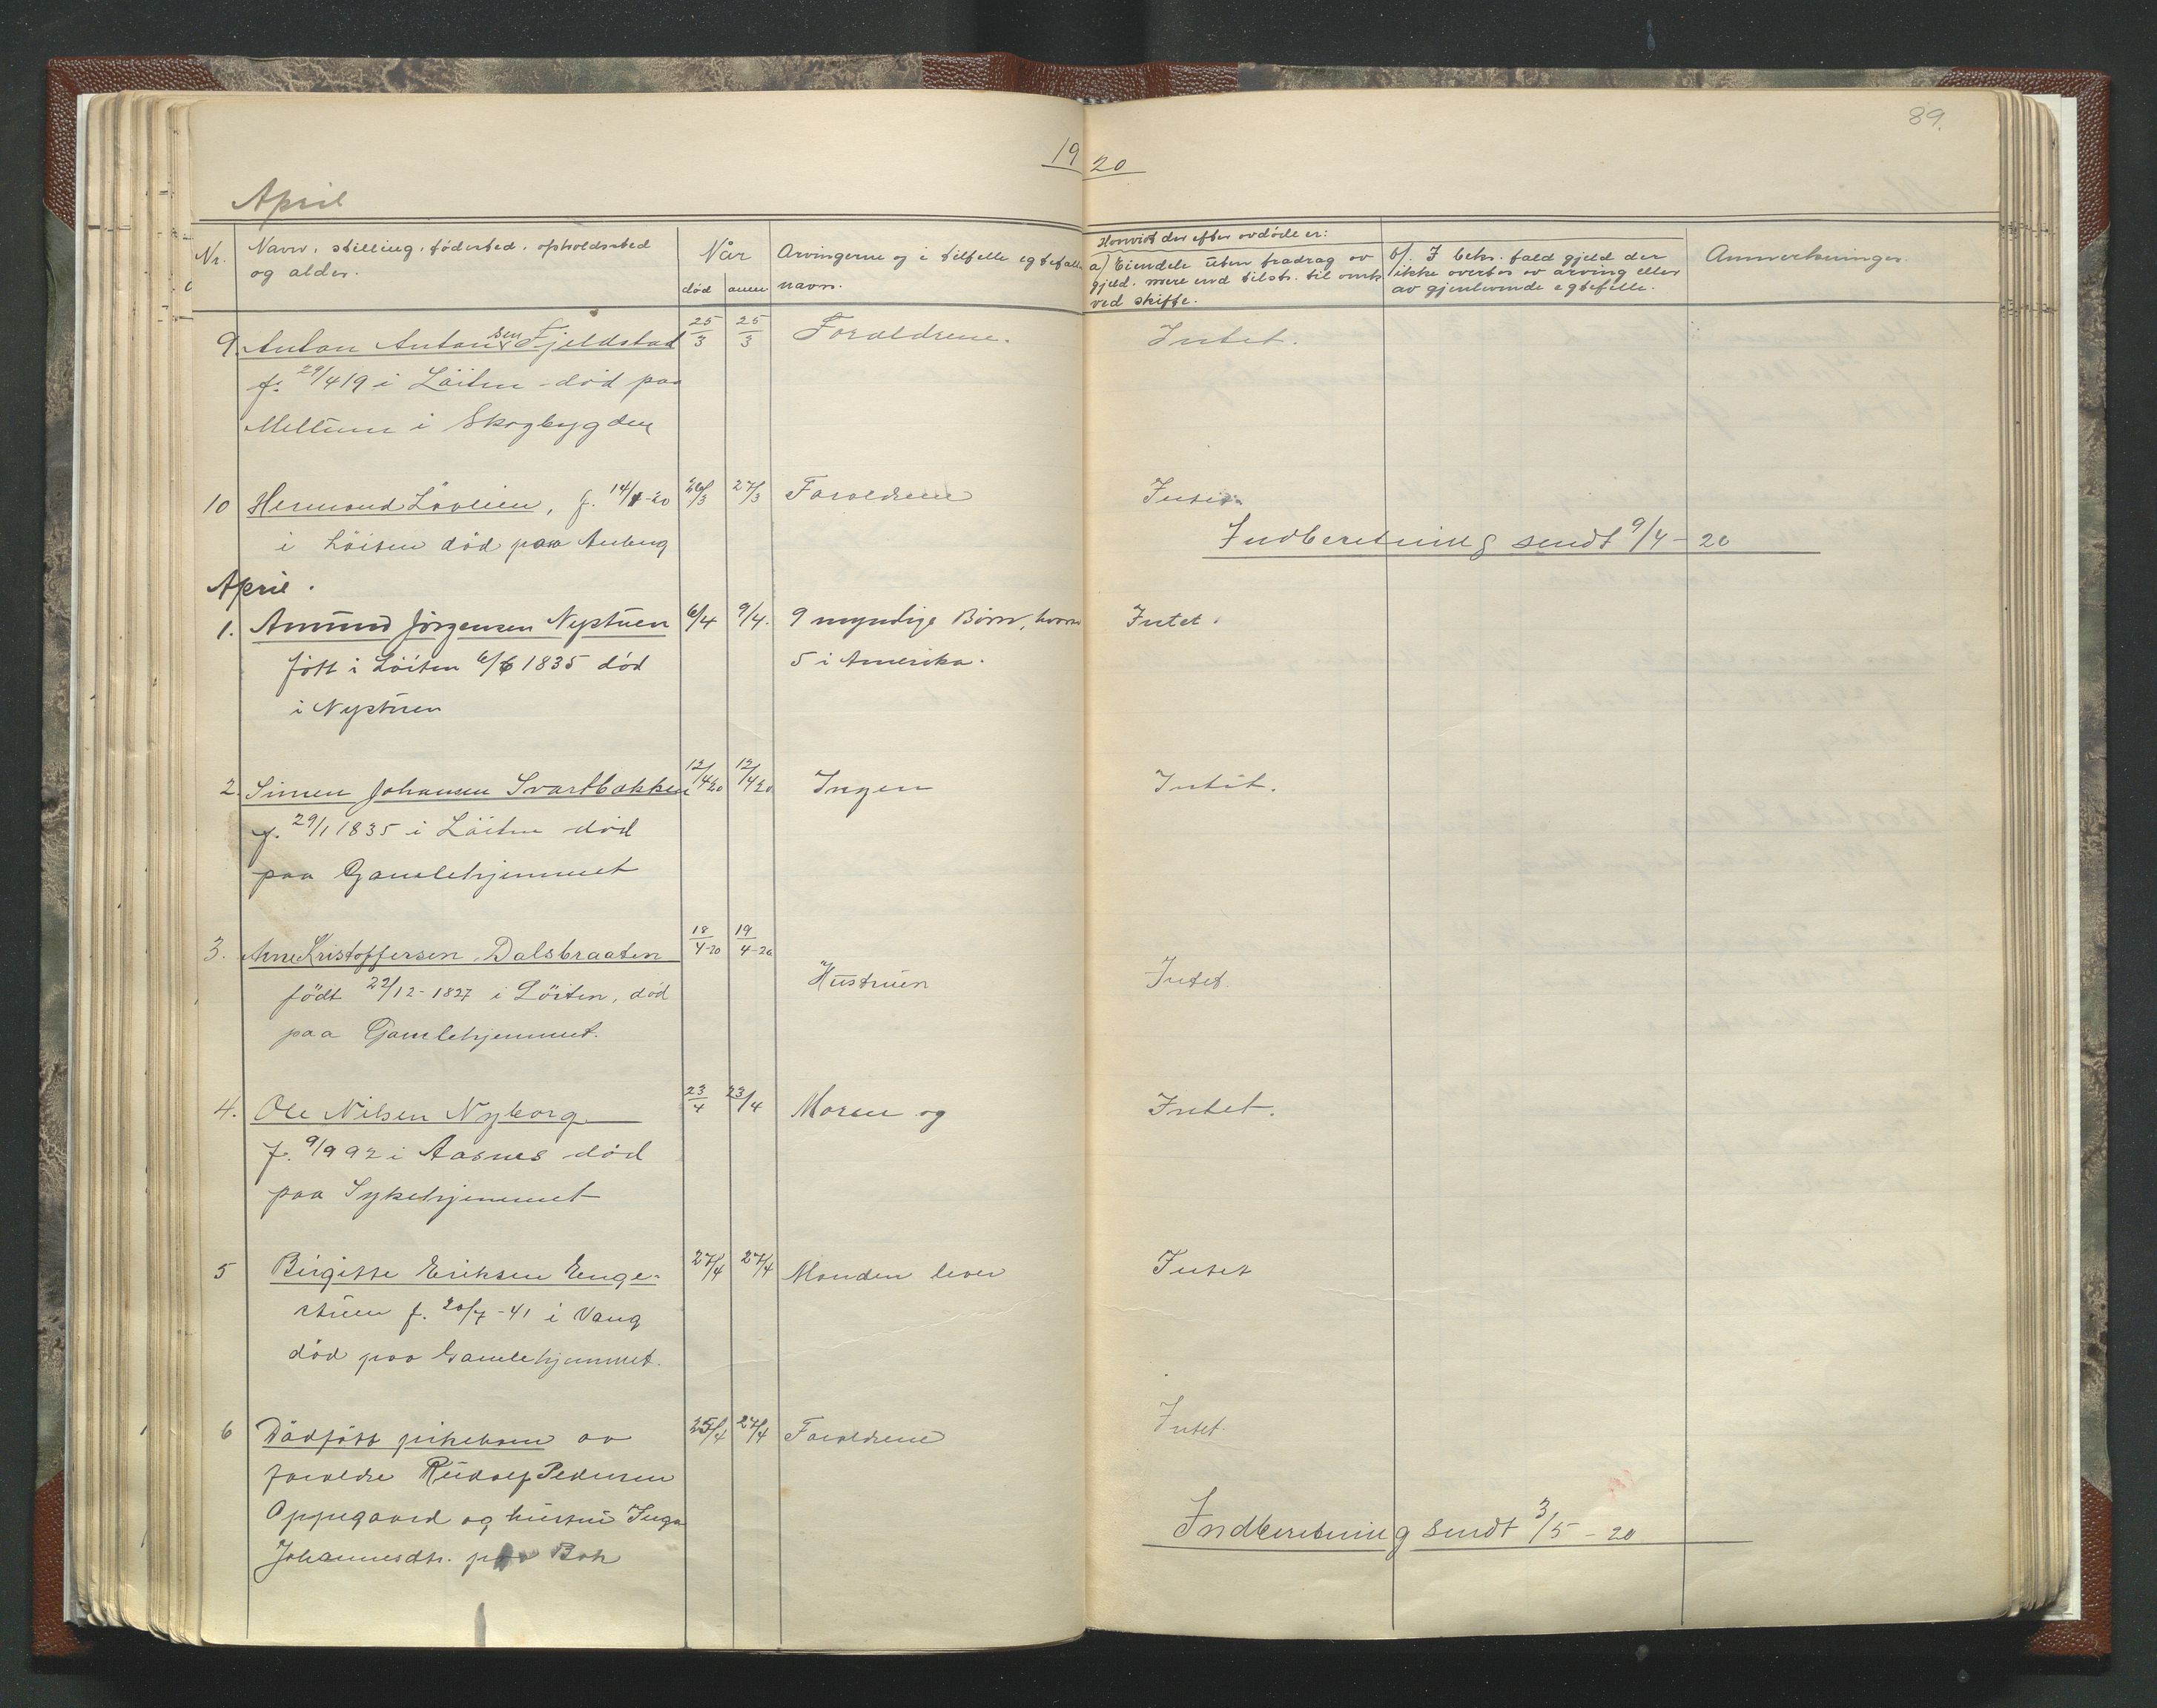 89.
19 20
April
Nr. Navn, stilling, födested, opholdssted og alder. Når død anm Arvingerne og i tilfelle egtefelle navn. Hvorvidt der efter avdöde er: a) Eiendele uten fradrag av gjeld, mere end tilstr. til omk ved skifte. b). I bekr. fald gjeld der ikke overtas av arving eller av gjenlevende egtefelle. Anmerkninger.
9. Anton Antonsen Fjeldstad 25/3 25/3 Forældrene. Intet.
f. 29/4 19 i Löiten - död paa
Mellum i Skogbygden
10 Hermand Lövlien, f. 14/1-20 26/3 27/3 Forældrene Intet
i Löiten död paa Anberg
Indberetning sendt 9/4-20
April.
1. Amund Jörgensen Nystuen 6/4 9/4. 9 myndige Börn, hvorav Intet.
fött i Löiten 6/6 1835 död 5 i Amerika.
i Nystuen
2. Simen Johansen Svartbækken 12/4 20 12/4 20 Ingen Intet.
f. 29/1 1835 i Löiten död
paa Gamlehjemmet
3. Arne Kristoffersen Dalsbraaten 18/4-20 19/4-20
Hustruen Intet.
födt 22/12-1827 i Löiten, död
paa Gamlehjemmet.
4. Ole Nilsen Nyborg 23/4 23/4 Moren og Intet.
f. 9/9 92 i Aasnes död
paa Sykehjemmet
5 Birgitte Eriksen Enge- 27/4 27/4 Manden lever Intet
stuen f. 20/7-41 i Vang
död paa Gamlehjemmet.
6 Dödfött pikebarn av 25/4 27/4 Forældrene Intet.
forældre Rudolf Pedersen
Oppegaard og hustru Inga
Johannesdtr. paa Boh
Indberetning sendt 3/5-20